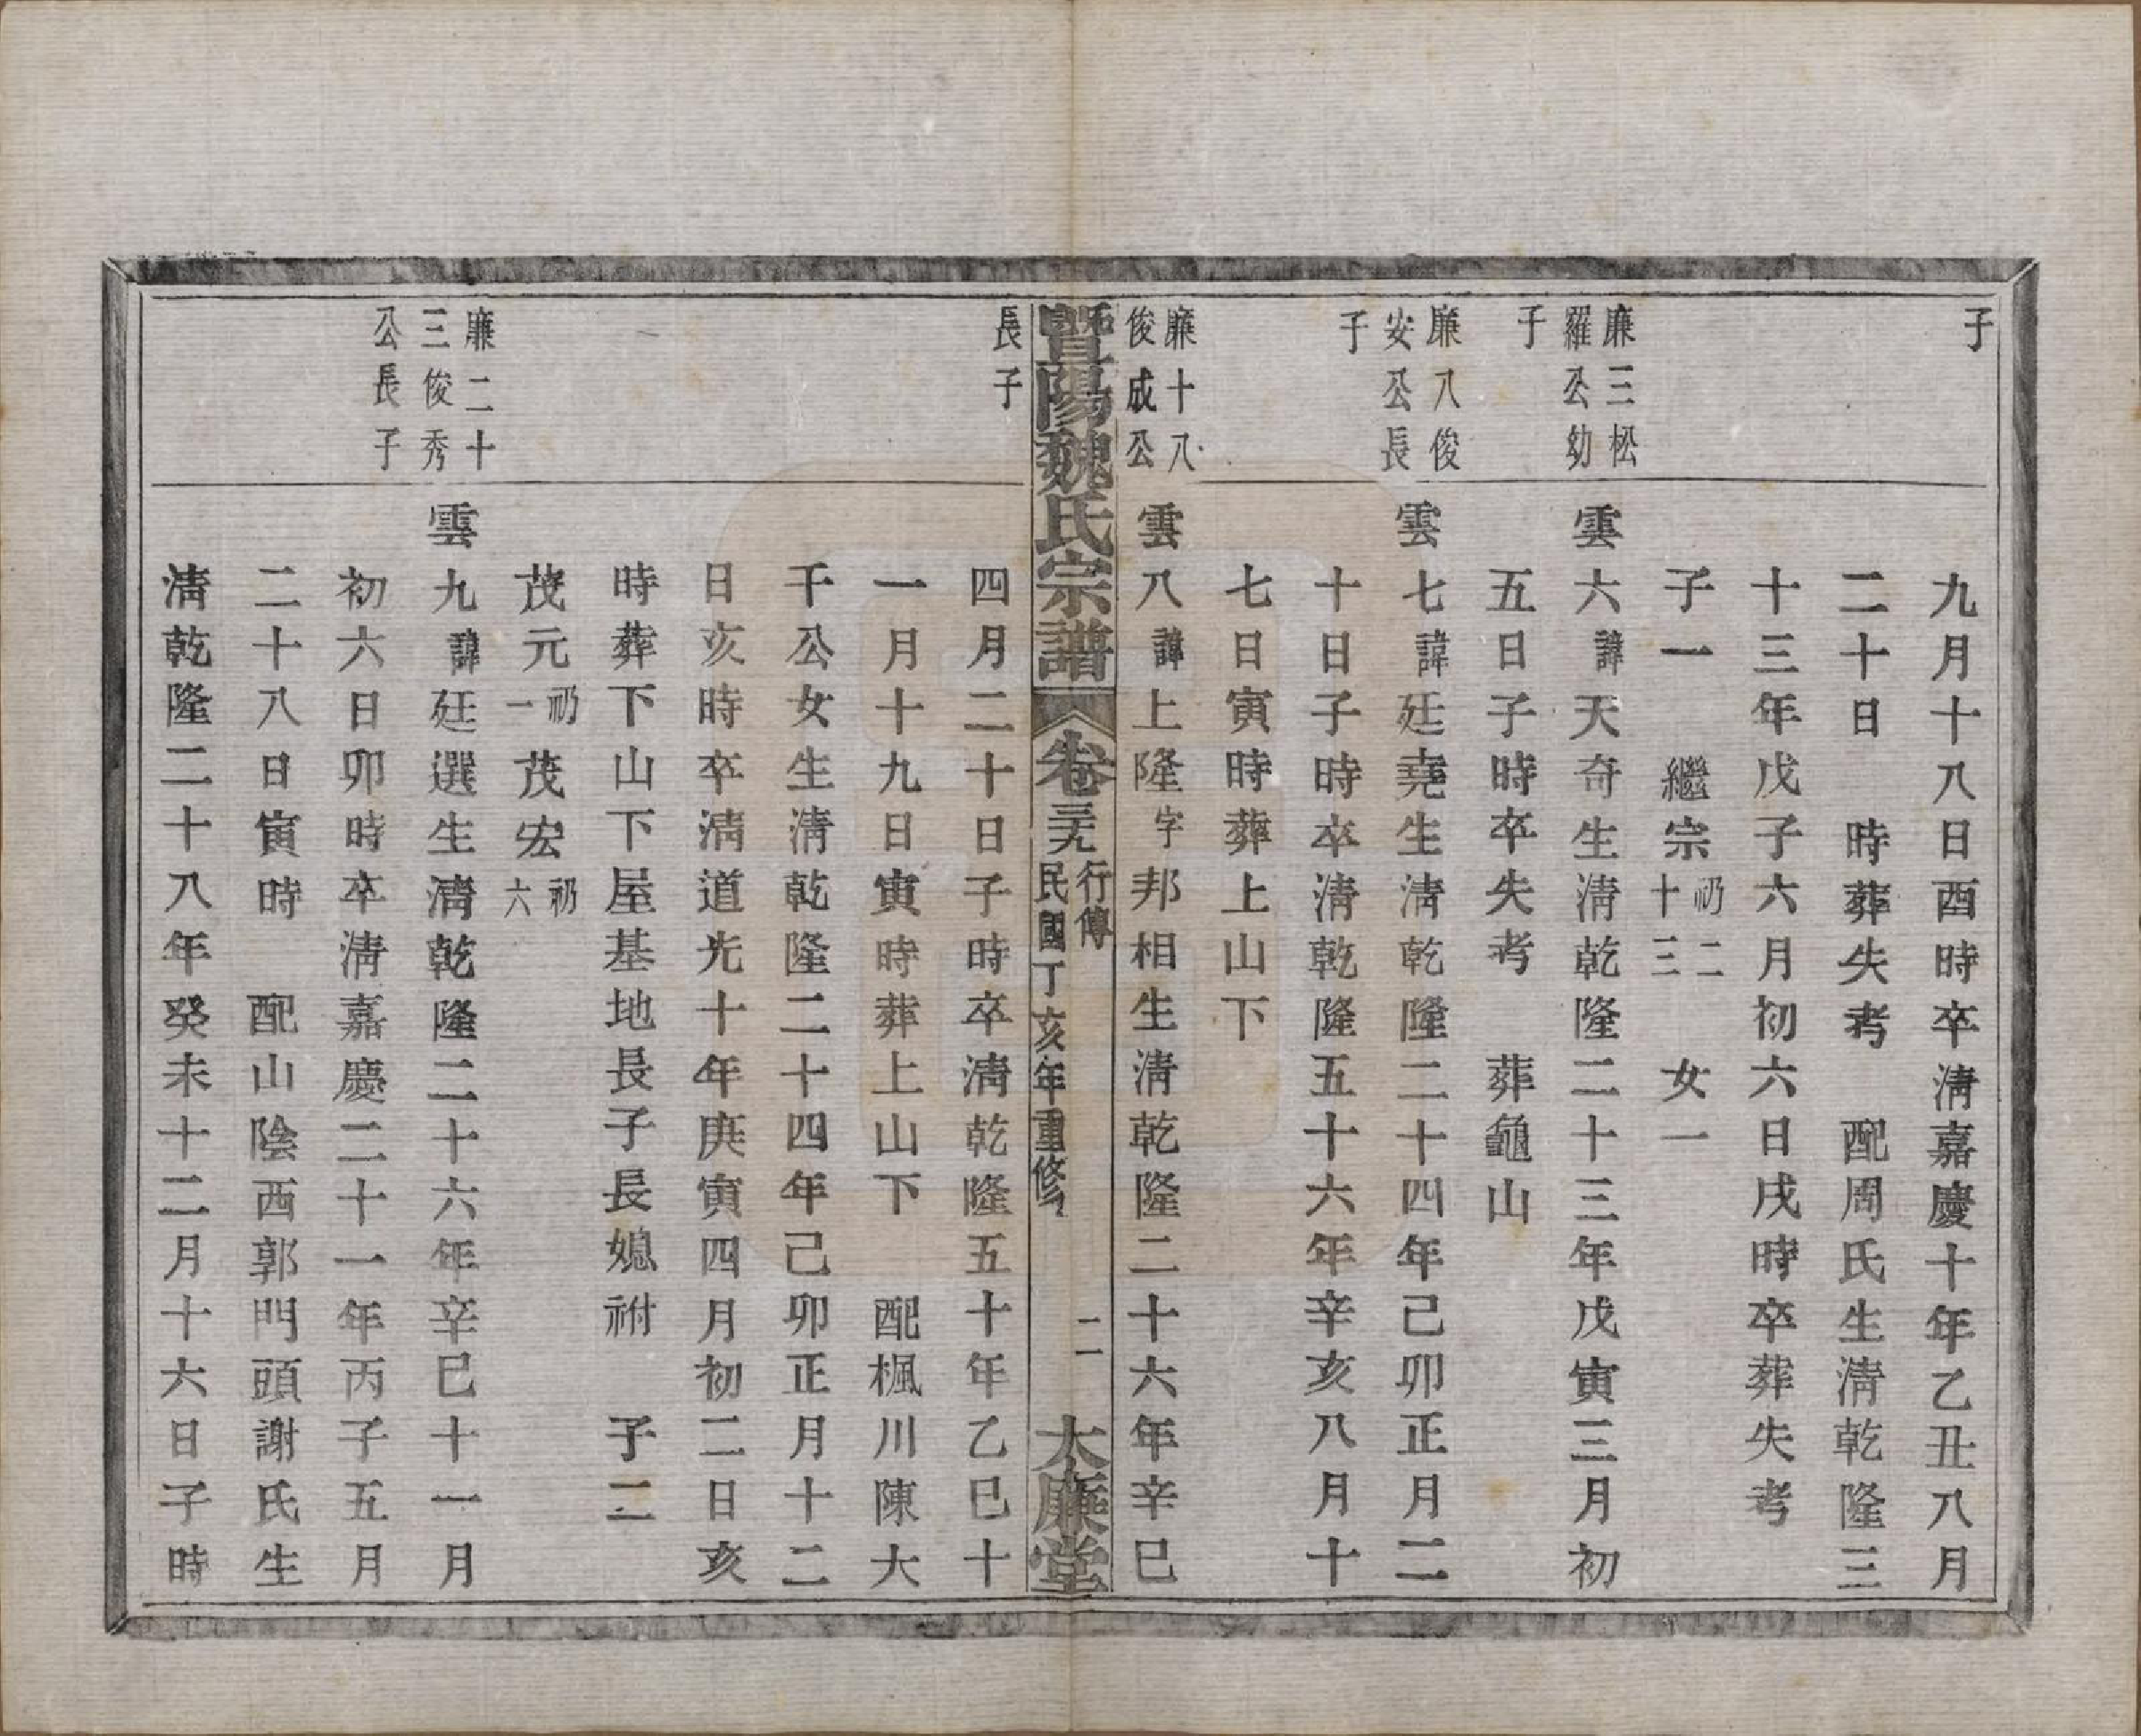 子
九月十八日酉時卒淸嘉慶十年乙丑八月
二十日　時葬失考　配周氏生淸乾隆三
十三年戊子六月初六日戌時卒葬失考
子一　繼宗礽二十三　女一
廉三松
羅公幼
子
雲六諱天奇生淸乾隆二十三年戊寅三月初
五日子時卒失考　葬龜山
廉八俊
安公長
子
雲七諱廷堯生淸乾隆二十四年己卯正月二
十日子時卒淸乾隆五十六年辛亥八月十
七日寅時葬上山下
廉十八
俊成公
雲八諱上隆字邦相生淸乾隆二十六年辛巳
暨陽魏氏宗譜
卷三九
行傳
民國丁亥年重修
二
大廉堂
長子
四月二十日子時卒淸乾隆五十年乙巳十
一月十九日寅時葬上山下　配楓川陳大
千公女生淸乾隆二十四年己卯正月十二
日亥時卒淸道光十年庚寅四月初二日亥
時葬下山下屋基地長子長媳祔　子二
茂元礽一茂宏礽六
廉二十
三俊秀
公長子
雲九諱廷選生淸乾隆二十六年辛巳十一月
初六日卯時卒淸嘉慶二十一年丙子五月
二十八日寅時　配山陰西郭門頭謝氏生
淸乾隆二十八年癸未十二月十六日子時